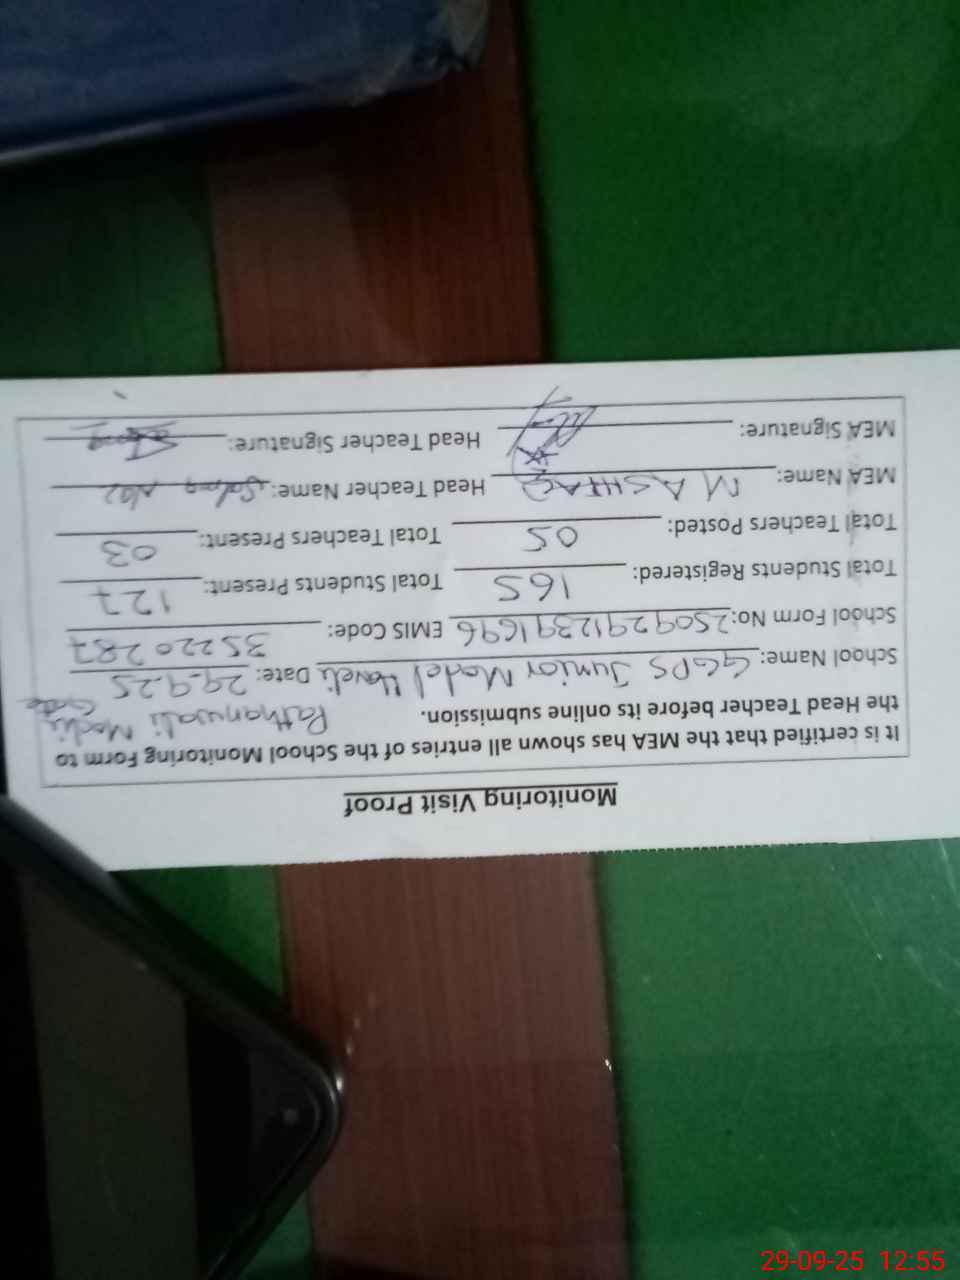 Monitoring Visit Proof
It is certified that the MEA has shown all entries of the School Monitoring Form to
the Head Teacher before its online submission. Pathanwali
School Name: GGPS Junior Model Haveli Date: 29.9.25
School Form No: 25092912391696 EMIS Code: 35220287
Total Students Registered: 165 Total Students Present: 127
Total Teachers Posted: 05 Total Teachers Present: 03
MEA Name: M ASHFAQ Head Teacher Name: Salma Naz
MEA Signature: Head Teacher Signature:
29-09-25 12:55